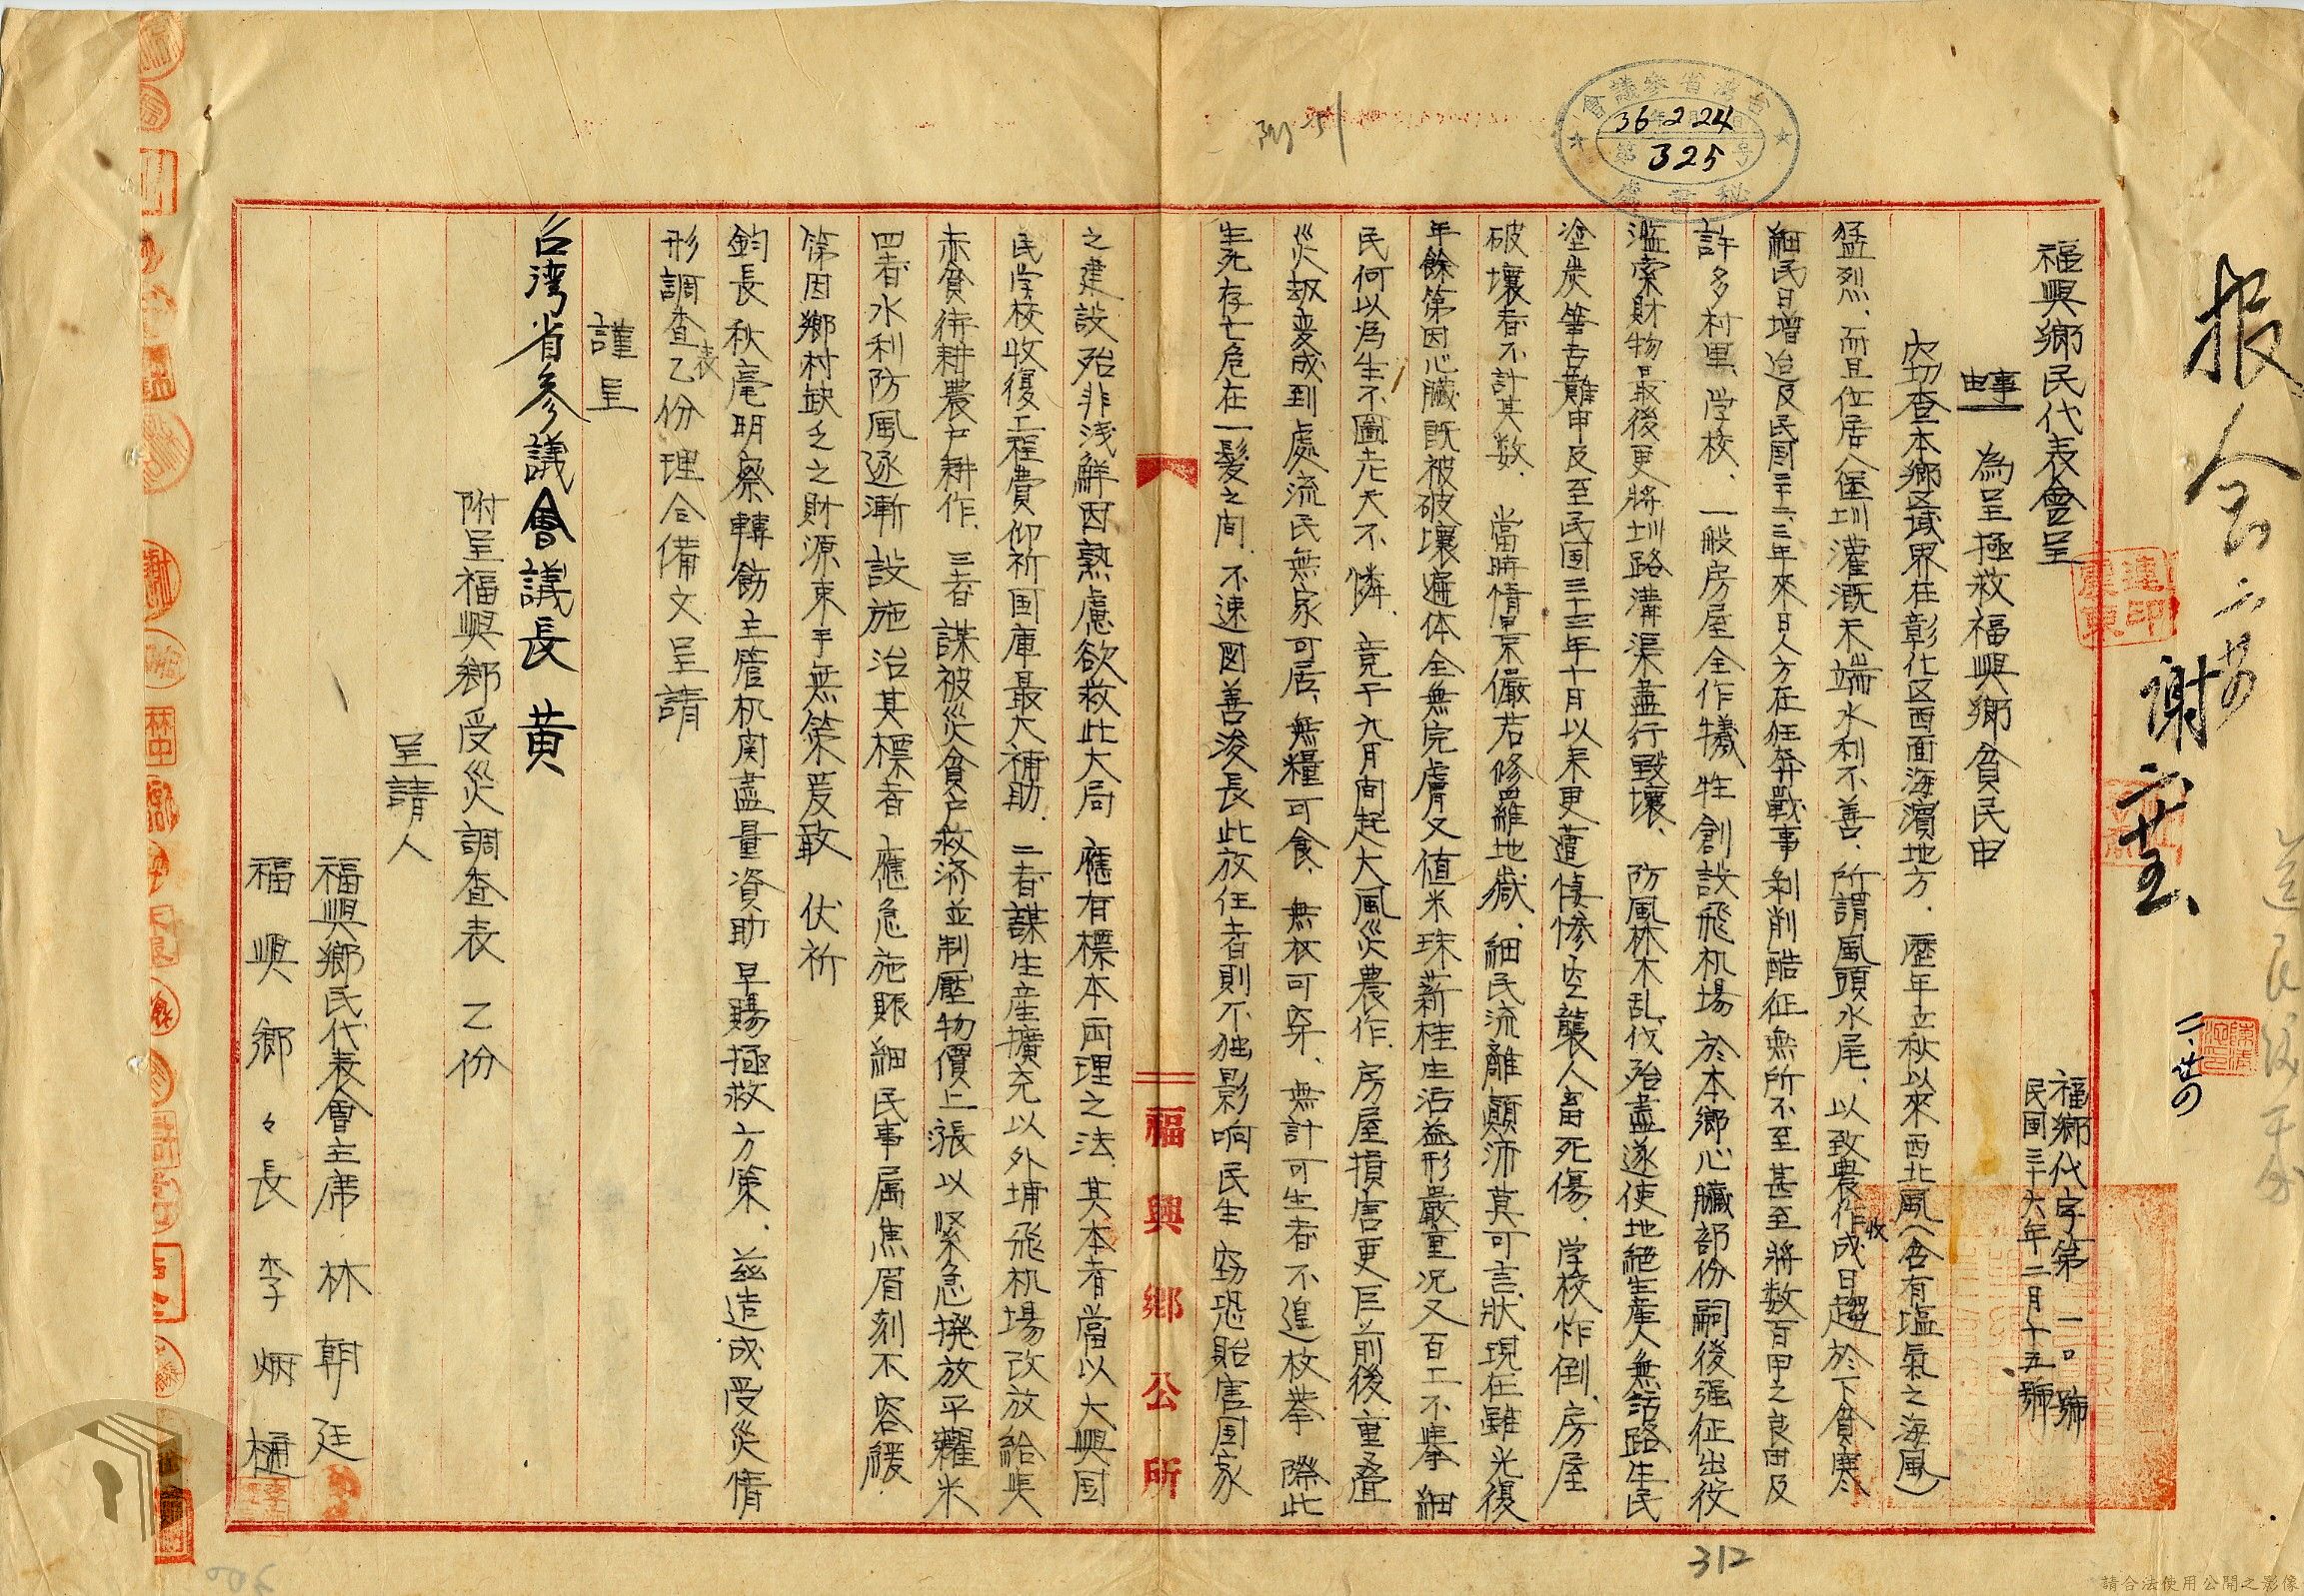 台湾省參議會
36 2 24
第325号
秘書處
報會
謝
二、廿四
福興鄉民代表會呈
福鄉代字第一〇號
民国三十六年二月十五號
事由
為呈極救福興鄉貧民由
窃查本鄉区域界在彰化区西面海濱地方．歷年立秋以來西北風(含有塩氣之海風)
猛烈、而且位居八堡圳灌溉末端水利不善、所謂風頭水尾、以致農作收成日趨於下貧寒
細民日增迨及民国三十二、三年來日人方在狂奔戰事剝削酷征無所不至甚至將数百甲之良田及
許多村里、学校、一般房屋全作犧牲創設飛机場於本鄉心臟部份嗣後强征出役
濫索財物最後更將圳路溝渠盡行毀壞、防風林木乱伐殆盡遂使地絕生產人無活路生民
塗炭筆舌難申及至民国三十三年十月以來更遭悽慘空襲人畜死傷．学校炸倒、房屋
破壞者不計其数．當時情景儼若修羅地獄、細民流離顛沛莫可言狀現在雖光復
年餘第因心臟既被破壞遍体全無完膚又值米珠薪桂生活益形嚴重况又百工不舉細
民何以為生不圖老天不憐、竟于九月间起大風災農作．房屋損害更巨前後重叠
災刼变成到處流民無家可居、無糧可食、無衣可穿、無計可生者不遑枚擧際此
生死存亡危在一髮之间．不速図善後長此放任者則不独影响民生窃恐貽害国家
之建設殆非淺鮮因熟慮欲救此大局應有標本両理之法、其本者當以大興国
民学校收復工程費仰祈国庫最大補助．二者謀生産擴充以外埔飛机場改放給與
赤貧待耕農户耕作．三者謀被災貧户救济並制壓物價上漲以緊急撥放平糶米
四者水利防風逐漸設施治其標者應急施賑細民事属焦眉刻不容緩
第因鄉村缺乏之財源束手無策爰敢伏祈
鈞長秋毫明察轉飭主管机関盡量資助早賜極救方策．茲造成受災情
形調查表乙份理合備文呈請
謹呈
台湾省參議會議長黄
附呈福興鄉受災調查表乙份
呈請人
福興鄉民代表會主席林朝廷
福興鄉々長李炳樾
福興鄉公所
312
請合法使用公開之影像